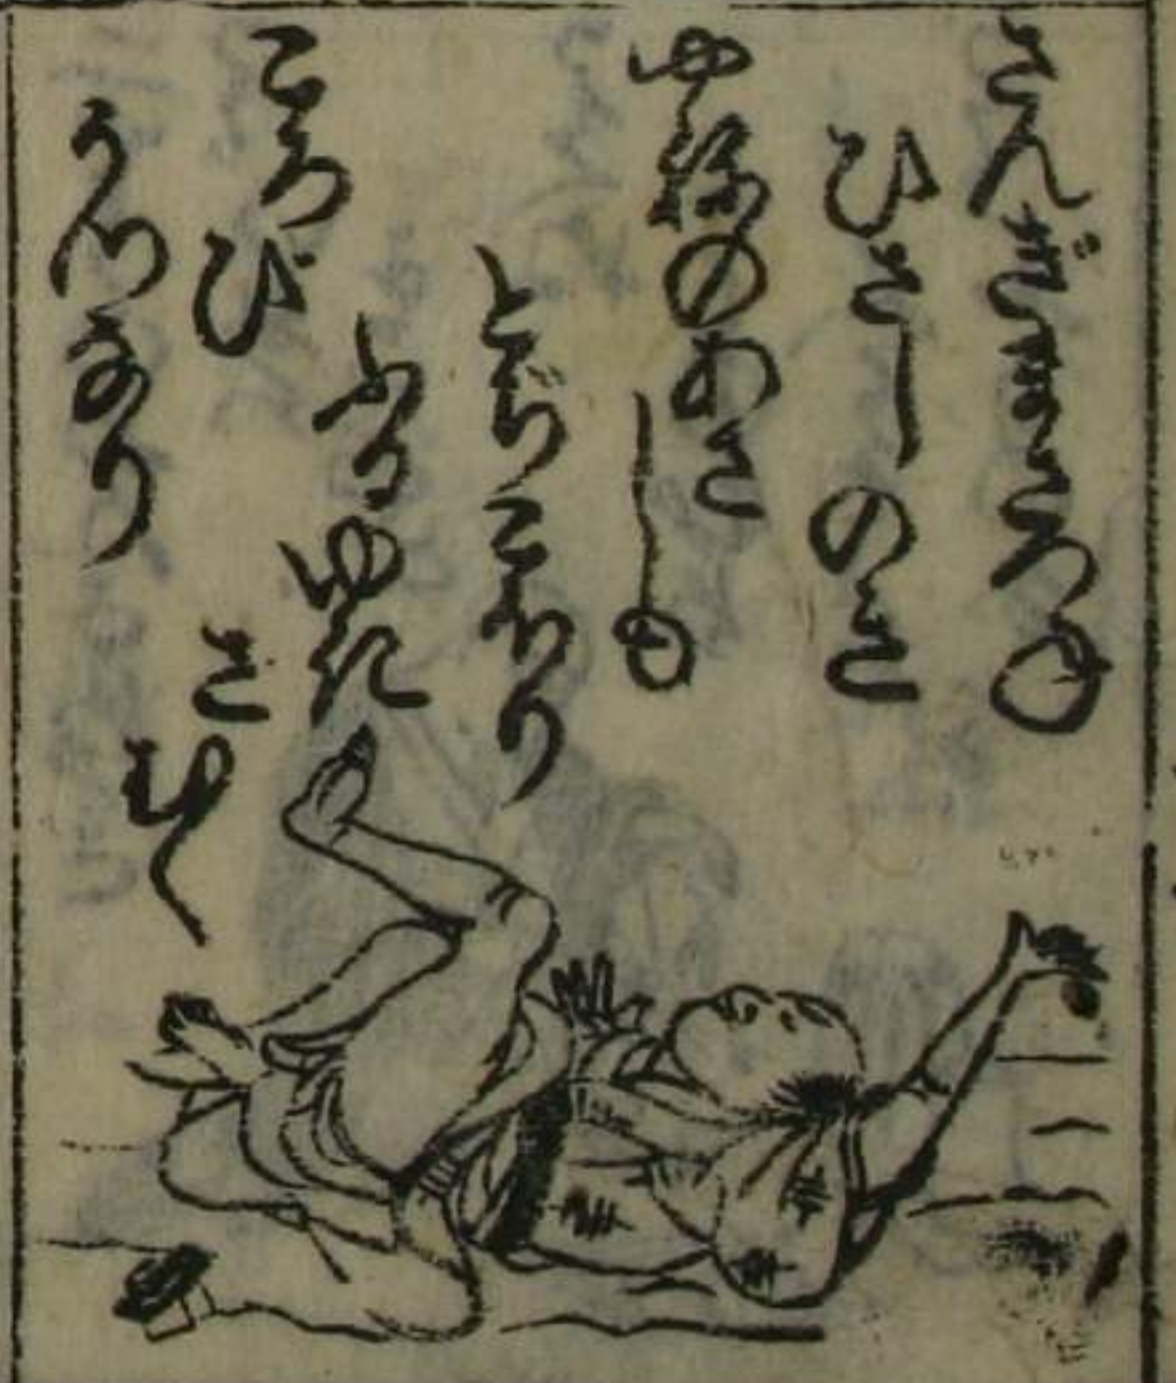 さんぎまさつね
ひさしのき
やねのあさ
しも
とぢこほり
ふるゆき
さむく
ころび
うつなり